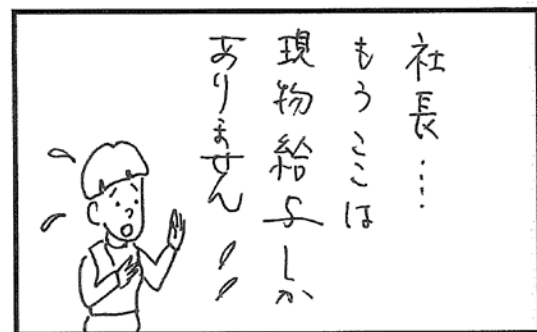 社長…
もうここは
現物給与しか
ありません〃